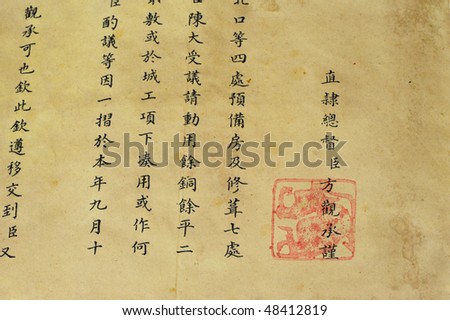 直隸總督臣方觀承謹
北口等四處預備房及修葺七處
陳大受議請動用餘銅餘平二
敷或於城工項下撥用或作何
臣酌議等因一摺於本年九月十
觀承可也欽此欽遵移交到臣又
www.shutterstock.com · 48412819